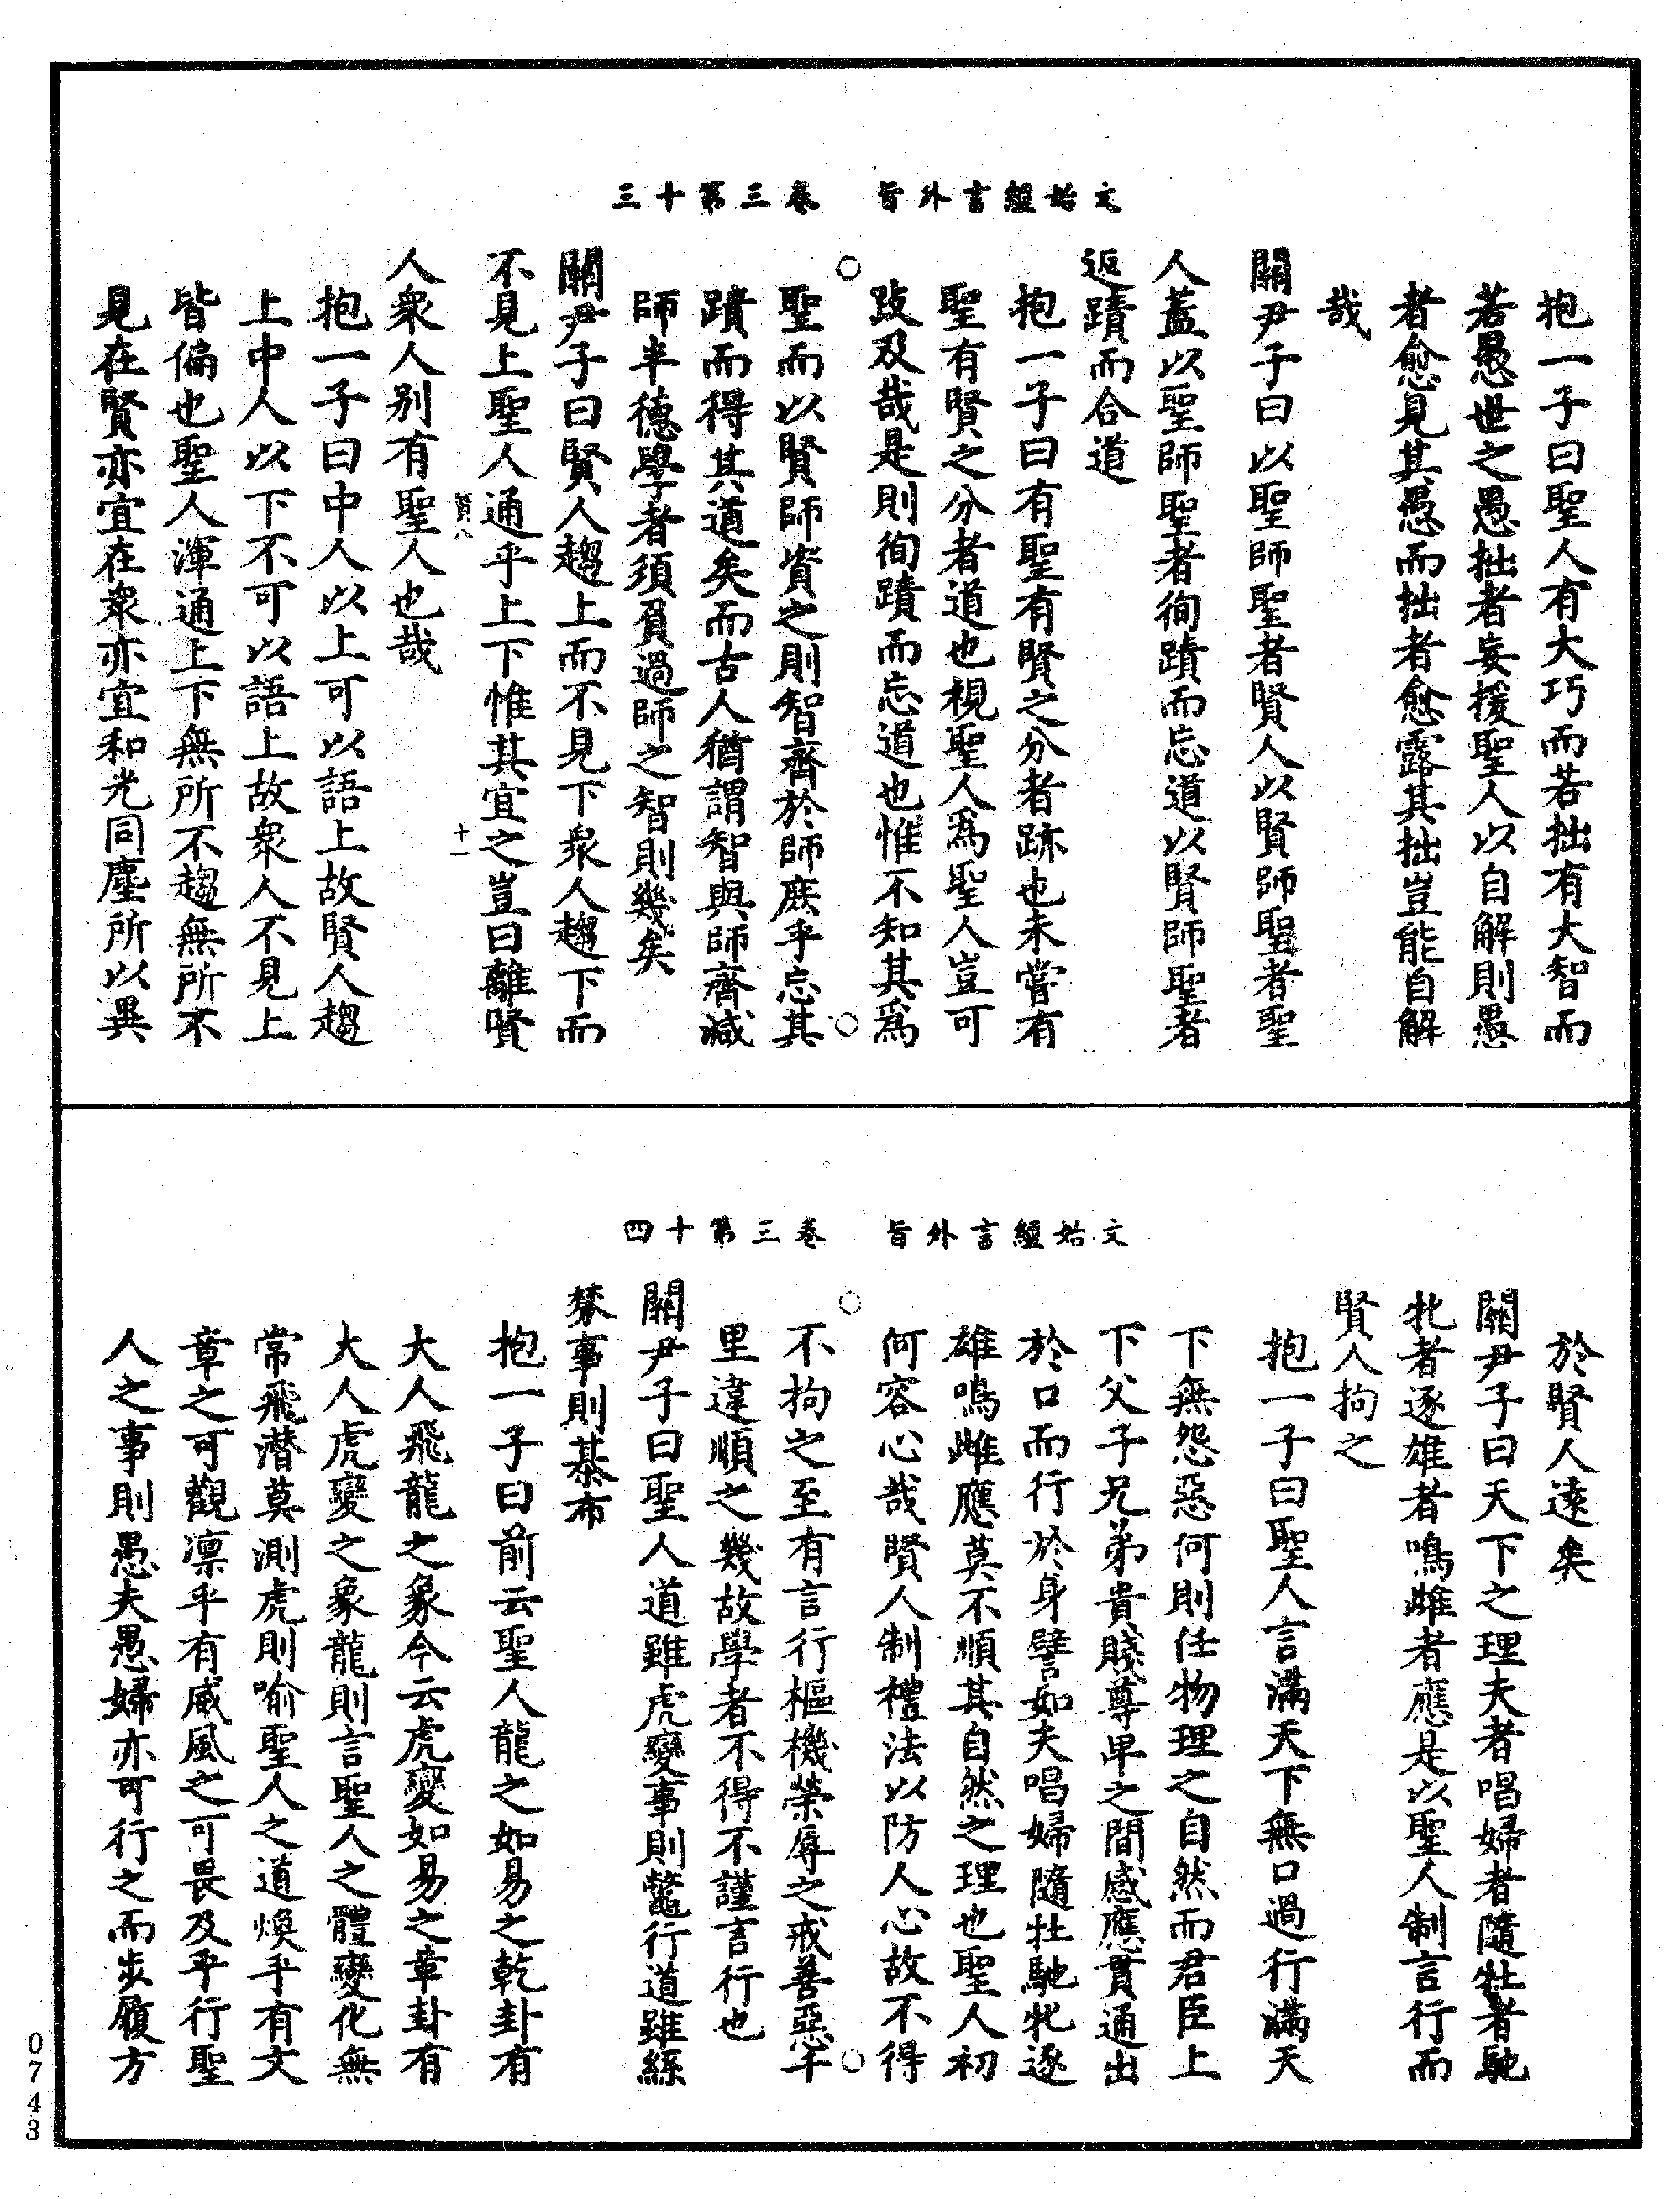 文始經言外旨　卷三第十三
抱一子曰聖人有大巧而若拙有大智而
若愚世之愚拙者妄援聖人以自解則愚
者愈見其愚而拙者愈露其拙豈能自解
哉
關尹子曰以聖師聖者賢人以賢師聖者聖
人蓋以聖師聖者徇蹟而忘道以賢師聖者
返蹟而合道
抱一子曰有聖有賢之分者跡也未嘗有
聖有賢之分者道也視聖人爲聖人豈可
跂及哉是則徇蹟而忘道也惟不知其爲
聖而以賢師資之則智齊於師庶乎忘其
蹟而得其道矣而古人猶謂智與師齊減
師半德學者須負過師之智則幾矣
關尹子曰賢人趨上而不見下衆人趨下而
不見上聖人通乎上下惟其宜之豈曰離賢
十一
人衆人別有聖人也哉
抱一子曰中人以上可以語上故賢人趨
上中人以下不可以語上故衆人不見上
皆偏也聖人渾通上下無所不趨無所不
見在賢亦宜在衆亦宜和光同塵所以異
文始經言外旨　卷三第十四
於賢人遠矣
關尹子曰天下之理夫者唱婦者隨牡者馳
牝者逐雄者鳴雌者應是以聖人制言行而
賢人拘之
抱一子曰聖人言滿天下無口過行滿天
下無怨惡何則任物理之自然而君臣上
下父子兄弟貴賤尊卑之間感應貫通出
於口而行於身譬如夫唱婦隨牡馳牝逐
雄鳴雌應莫不順其自然之理也聖人初
何容心哉賢人制禮法以防人心故不得
不拘之至有言行樞機榮辱之戒善惡千
里違順之幾故學者不得不謹言行也
關尹子曰聖人道雖虎變事則鼈行道雖絲
棼事則棊布
抱一子曰前云聖人龍之如易之乾卦有
大人飛龍之象今云虎變如易之革卦有
大人虎變之象龍則言聖人之體變化無
常飛潛莫測虎則喻聖人之道煥乎有文
章之可觀凛乎有威風之可畏及乎行聖
人之事則愚夫愚婦亦可行之而步履方
0743